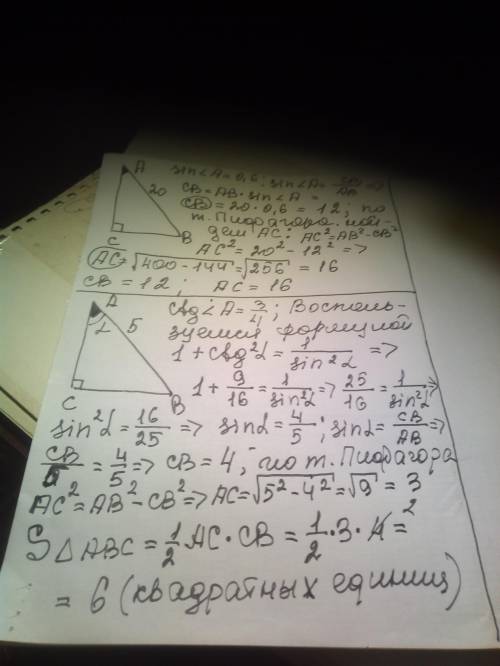 A
20
C
B
sin∠A=0,6; sin∠A= CB/AB =>
CB=AB·sin∠A =
CB=20·0,6=12; по
т. Пифагора най-
дем AC: AC²=AB²-CB²
AC²=20²-12² =>
AC=√400-144=√256 = 16
CB=12; AC=16
A
L 5
C
B
Ctg∠A=3/4; Восполь-
зуемся формулой
1+Ctg²L=1/sin²L =>
1+9/16=1/sin²L => 25/16=1/sin²L =>
sin²L=16/25 => sinL=4/5; sinL=CB/AB =>
CB/5=4/5 => CB=4, по т. Пифагора
AC²=AB²-CB² => AC=√5²-4²=√9=3
S△ABC=1/2·AC·CB=1/2·3·4²=
=6 (квадратных единиц)